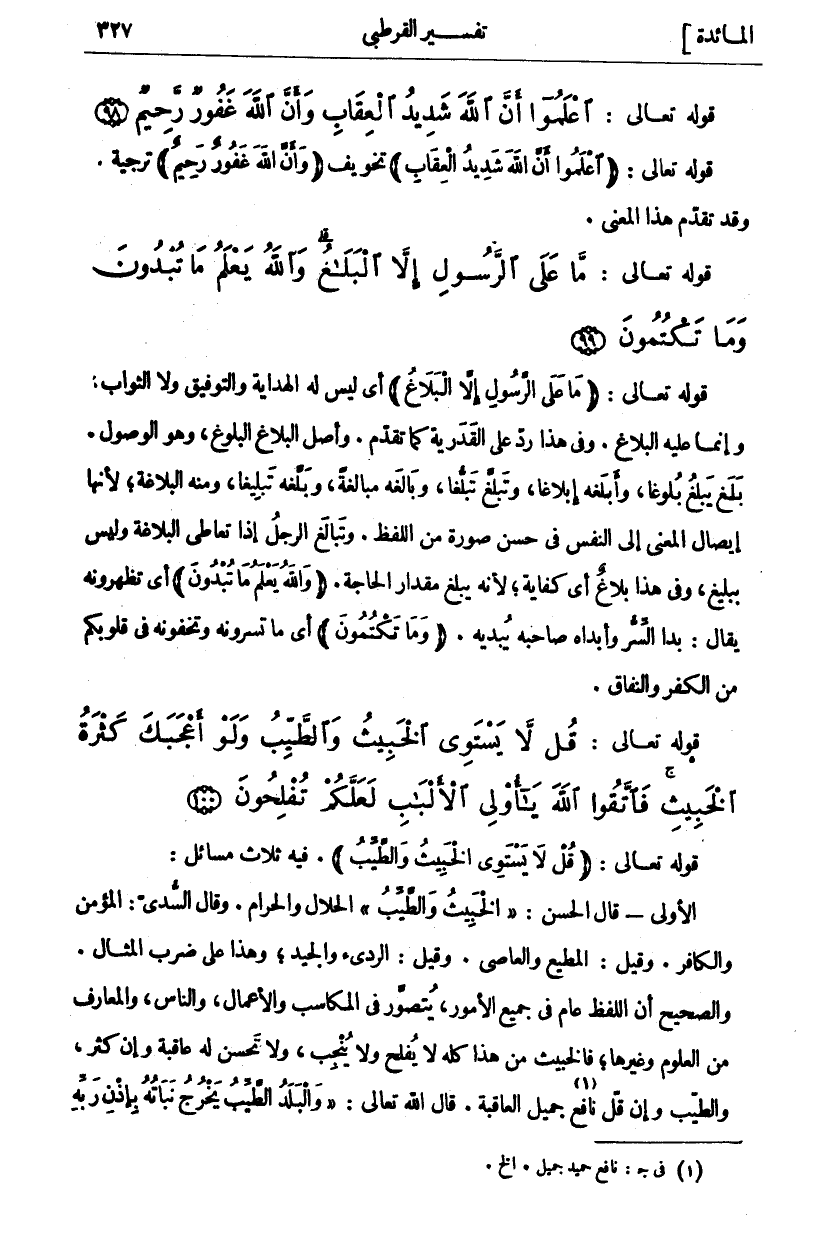 المائدة ] تفسير القرطبي ٣٢٧
قوله تعالى : ٱعْلَمُوٓا۟ أَنَّ ٱللَّهَ شَدِيدُ ٱلْعِقَابِ وَأَنَّ ٱللَّهَ غَفُورٌ رَّحِيمٌ ٩٨
قوله تعالى : ﴿ ٱعْلَمُوا أَنَّ اللهَ شَدِيدُ الْعِقَابِ ﴾ تخويف ﴿ وَأَنَّ اللهَ غَفُورٌ رَحِيمٌ ﴾ ترجية .
وقد تقدّم هذا المعنى .
قوله تعالى : مَّا عَلَى ٱلرَّسُولِ إِلَّا ٱلْبَلَـٰغُ ۗ وَٱللَّهُ يَعْلَمُ مَا تُبْدُونَ
وَمَا تَكْتُمُونَ ٩٩
قوله تعالى : ﴿ مَا عَلَى الرَّسُولِ إِلَّا الْبَلَاغُ ﴾ أى ليس له الهداية والتوفيق ولا الثواب؛
وإنما عليه البلاغ . وفى هذا ردّ على القَدَرية كما تقدّم . وأصل البلاغ البلوغ، وهو الوصول .
بَلَغ يَبلغُ بُلوغا، وأَبلغه إبلاغا، وتَبلَّغ تَبلُّغا، وبَالَغه مبالغةً، وبَلَّغه تَبليغا، ومنه البلاغة؛ لأنها
إيصال المعنى إلى النفس فى حسن صورة من اللفظ . وتَبَالَغ الرجلُ إذا تعاطى البلاغة وليس
ببليغ، وفى هذا بلاغٌ أى كفاية؛ لأنه يبلغ مقدار الحاجة . ﴿ وَاللهُ يَعْلَمُ مَا تُبْدُونَ ﴾ أى تظهرونه
يقال : بدا السِّرُّ وأبداه صاحبه يُبديه . ﴿ وَمَا تَكْتُمُونَ ﴾ أى ما تسرونه وتخفونه فى قلوبكم
من الكفر والنفاق .
قوله تعالى : قُل لَّا يَسْتَوِى ٱلْخَبِيثُ وَٱلطَّيِّبُ وَلَوْ أَعْجَبَكَ كَثْرَةُ
ٱلْخَبِيثِ ۚ فَٱتَّقُوا ٱللَّهَ يَـٰٓأُو۟لِى ٱلْأَلْبَـٰبِ لَعَلَّكُمْ تُفْلِحُونَ ١٠٠
قوله تعالى : ﴿ قُلْ لَا يَسْتَوِى الخَبِيثُ وَالطَّيِّبُ ﴾ . فيه ثلاث مسائل :
الأولى — قال الحسن : « الخَبِيثُ وَالطَّيِّبُ » الحلال والحرام . وقال السُّدى : المؤمن
والكافر . وقيل : المطيع والعاصى . وقيل : الردىء والجيد ؛ وهذا على ضرب المثال .
والصحيح أن اللفظ عام فى جميع الأمور، يُتصوّر فى المكاسب والأعمال، والناس، والمعارف
من العلوم وغيرها؛ فالخبيث من هذا كله لا يُفلح ولا يُنْجِب، ولا تَحسن له عاقبة وإن كثر،
والطيّب وإن قلّ نافع (١) جميل العاقبة . قال الله تعالى : « وَالْبَلَدُ الطَّيِّبُ يَخْرُجُ نَبَاتُهُ بِإِذْنِ رَبِّهِ
(١) فى جـ : نافع حميد جميل . الخ .